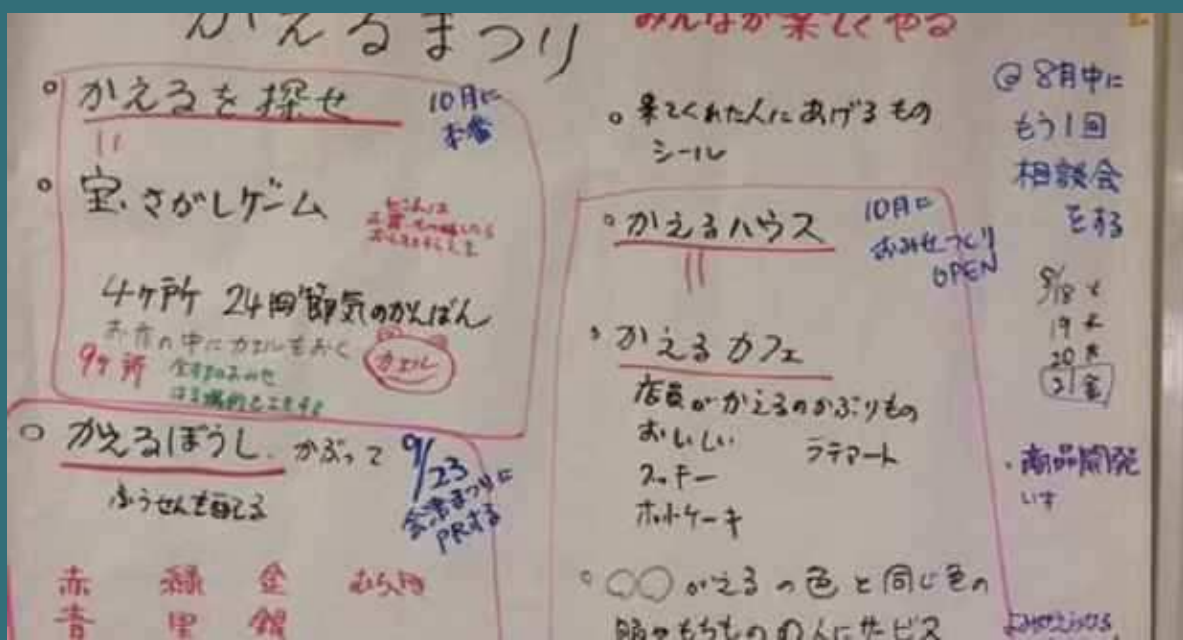 かえるまつり
みんなが楽しくやる
○ かえるを探せ
10月に
本番
○ 宝さがしゲーム
4ヶ所 24回節気のかんばん
お店の中にカエルをおく
カエル
9ヶ所
○ かえるぼうし かぶって
9/23
会津まつりに
PRする
赤 緑 金
青 黒 銀
○ 来てくれた人にあげるもの
シール
○ かえるハウス
10月に
おみせづくり
OPEN
かえるカフェ
店員がかえるのかぶりもの
おいしい ラテアート
クッキー
ホットケーキ
○ ○○がえるの色と同じ色の
もちものの人にサービス
@ 8月中に
もう1回
相談会
をする
8/18 火
19 水
20 木
21 金
商品開発
いす